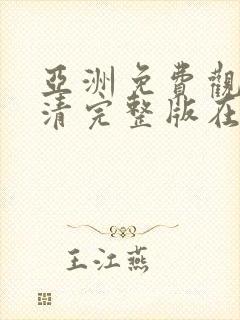 亞洲免費觀
清完整版在
王江燕